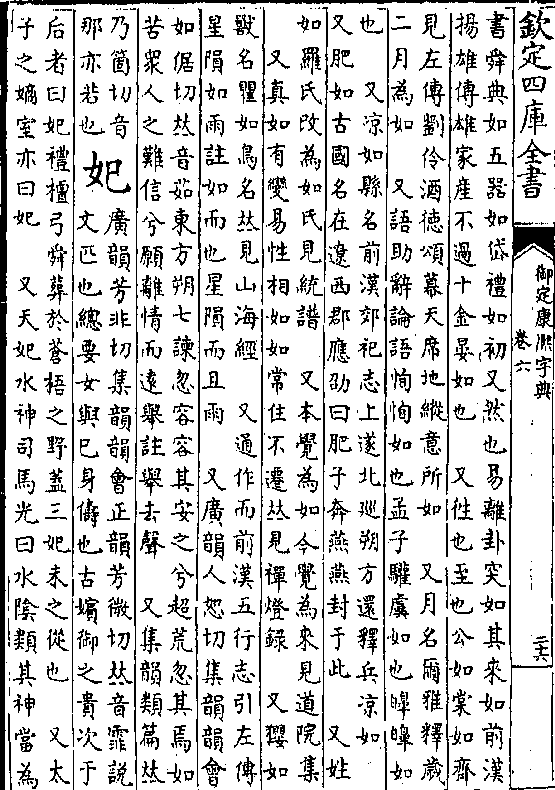 欽定四庫全書
御定康熙字典
卷六
書舜典如五器如岱禮如初又然也易離卦突如其來如前漢
揚雄傳雄家産不過十金晏如也　又往也至也公如棠如齊
見左傳劉伶酒徳頌幕天席地縱意所如　又月名爾雅釋歳
二月為如　又語助辭論語恂恂如也孟子驩虞如也皥皥如
也　又涼如縣名前漢郊祀志上遂北廵朔方還釋兵涼如
又肥如古國名在遼西郡應劭曰肥子奔燕燕封于此　又姓
如羅氏改為如氏見統譜　又本覺為如今覺為來見道院集
又真如有變易性相如如常住不遷𠀤見禪燈録　又玃如
獸名瞿如鳥名𠀤見山海經　又通作而前漢五行志引左傳
星隕如雨註如而也星隕而且雨　又廣韻人恕切集韻韻會
如倨切𠀤音茹東方朔七諫忽容容其安之兮超荒忽其焉如
苦衆人之難信兮願離情而逺舉註舉去聲　又集韻類篇𠀤
乃箇切音
那亦若也
妃
廣韻芳非切集韻韻會正韻芳微切𠀤音霏説
文匹也總要女與已身儔也古嬪御之貴次于
后者曰妃禮檀弓舜葬於蒼梧之野蓋三妃未之從也　又太
子之嫡室亦曰妃　又天妃水神司馬光曰水陰類其神當為